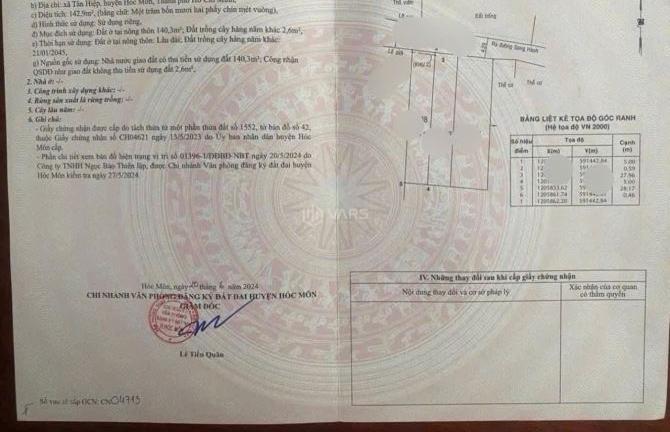 b) Địa chỉ: xã Tân Hiệp, huyện Hóc Môn,
c) Diện tích: 142,9m², (bằng chữ: Một trăm bốn mươi hai phẩy chín mét vuông),
d) Hình thức sử dụng: Sử dụng riêng,
đ) Mục đích sử dụng: Đất ở tại nông thôn 140,3m²; Đất trồng cây hàng năm khác 2,6m²,
e) Thời hạn sử dụng: Đất ở tại nông thôn: Lâu dài; Đất trồng cây hàng năm khác:
21/01/2045,
g) Nguồn gốc sử dụng: Nhà nước giao đất có thu tiền sử dụng đất 140,3m²; Công nhận
QSDĐ như giao đất không thu tiền sử dụng đất 2,6m².
2. Nhà ở: -/-
3. Công trình xây dựng khác: -/-
4. Rừng sản xuất là rừng trồng: -/-
5. Cây lâu năm: -/-
6. Ghi chú:
- Giấy chứng nhận được cấp do tách thửa từ một phần thửa đất số 1552, tờ bản đồ số 42,
thuộc Giấy chứng nhận số CH04621 ngày 15/5/2023 do Ủy ban nhân dân huyện Hóc
Môn cấp.
- Phần chi tiết xem bản đồ hiện trạng vị trí số 01396-1/ĐĐBĐ-NBT ngày 20/5/2024 do
Công ty TNHH Ngọc Bảo Thiên lập, được Chi nhánh Văn phòng đăng ký đất đai huyện
Hóc Môn kiểm tra ngày 27/5/2024.
Hóc Môn, ngày 6 năm 2024
CHI NHÁNH VĂN PHÒNG ĐĂNG KÝ ĐẤT ĐAI HUYỆN HÓC MÔN
GIÁM ĐỐC
Lê Tiến Quân
Số vào sổ cấp GCN: CN04713
Thổ vườn
Đất trống
Lề
Lề đất
Ra đường Song Hành
Thổ cư
Thổ cư
VARS
BẢNG LIỆT KÊ TỌA ĐỘ GÓC RANH
(Hệ tọa độ VN 2000)
Số hiệu điểm Tọa độ Cạnh (m)
X(m) Y(m)
1 591442.84 5.00
2 0.59
3 27.96
4 5.00
5 1205833.62 28.17
6 1205861.74 0.46
1 1205862.20 591442.84
IV. Những thay đổi sau khi cấp giấy chứng nhận
Nội dung thay đổi và cơ sở pháp lý
Xác nhận của cơ quan
có thẩm quyền